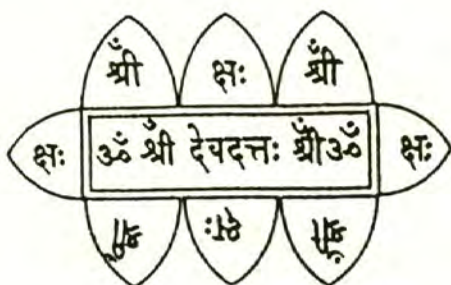 श्रीँ क्षः श्रीँ
क्षः ॐ श्रीँ देवदत्तः श्रीँ ॐ क्षः
श्रीँ क्षः श्रीँ